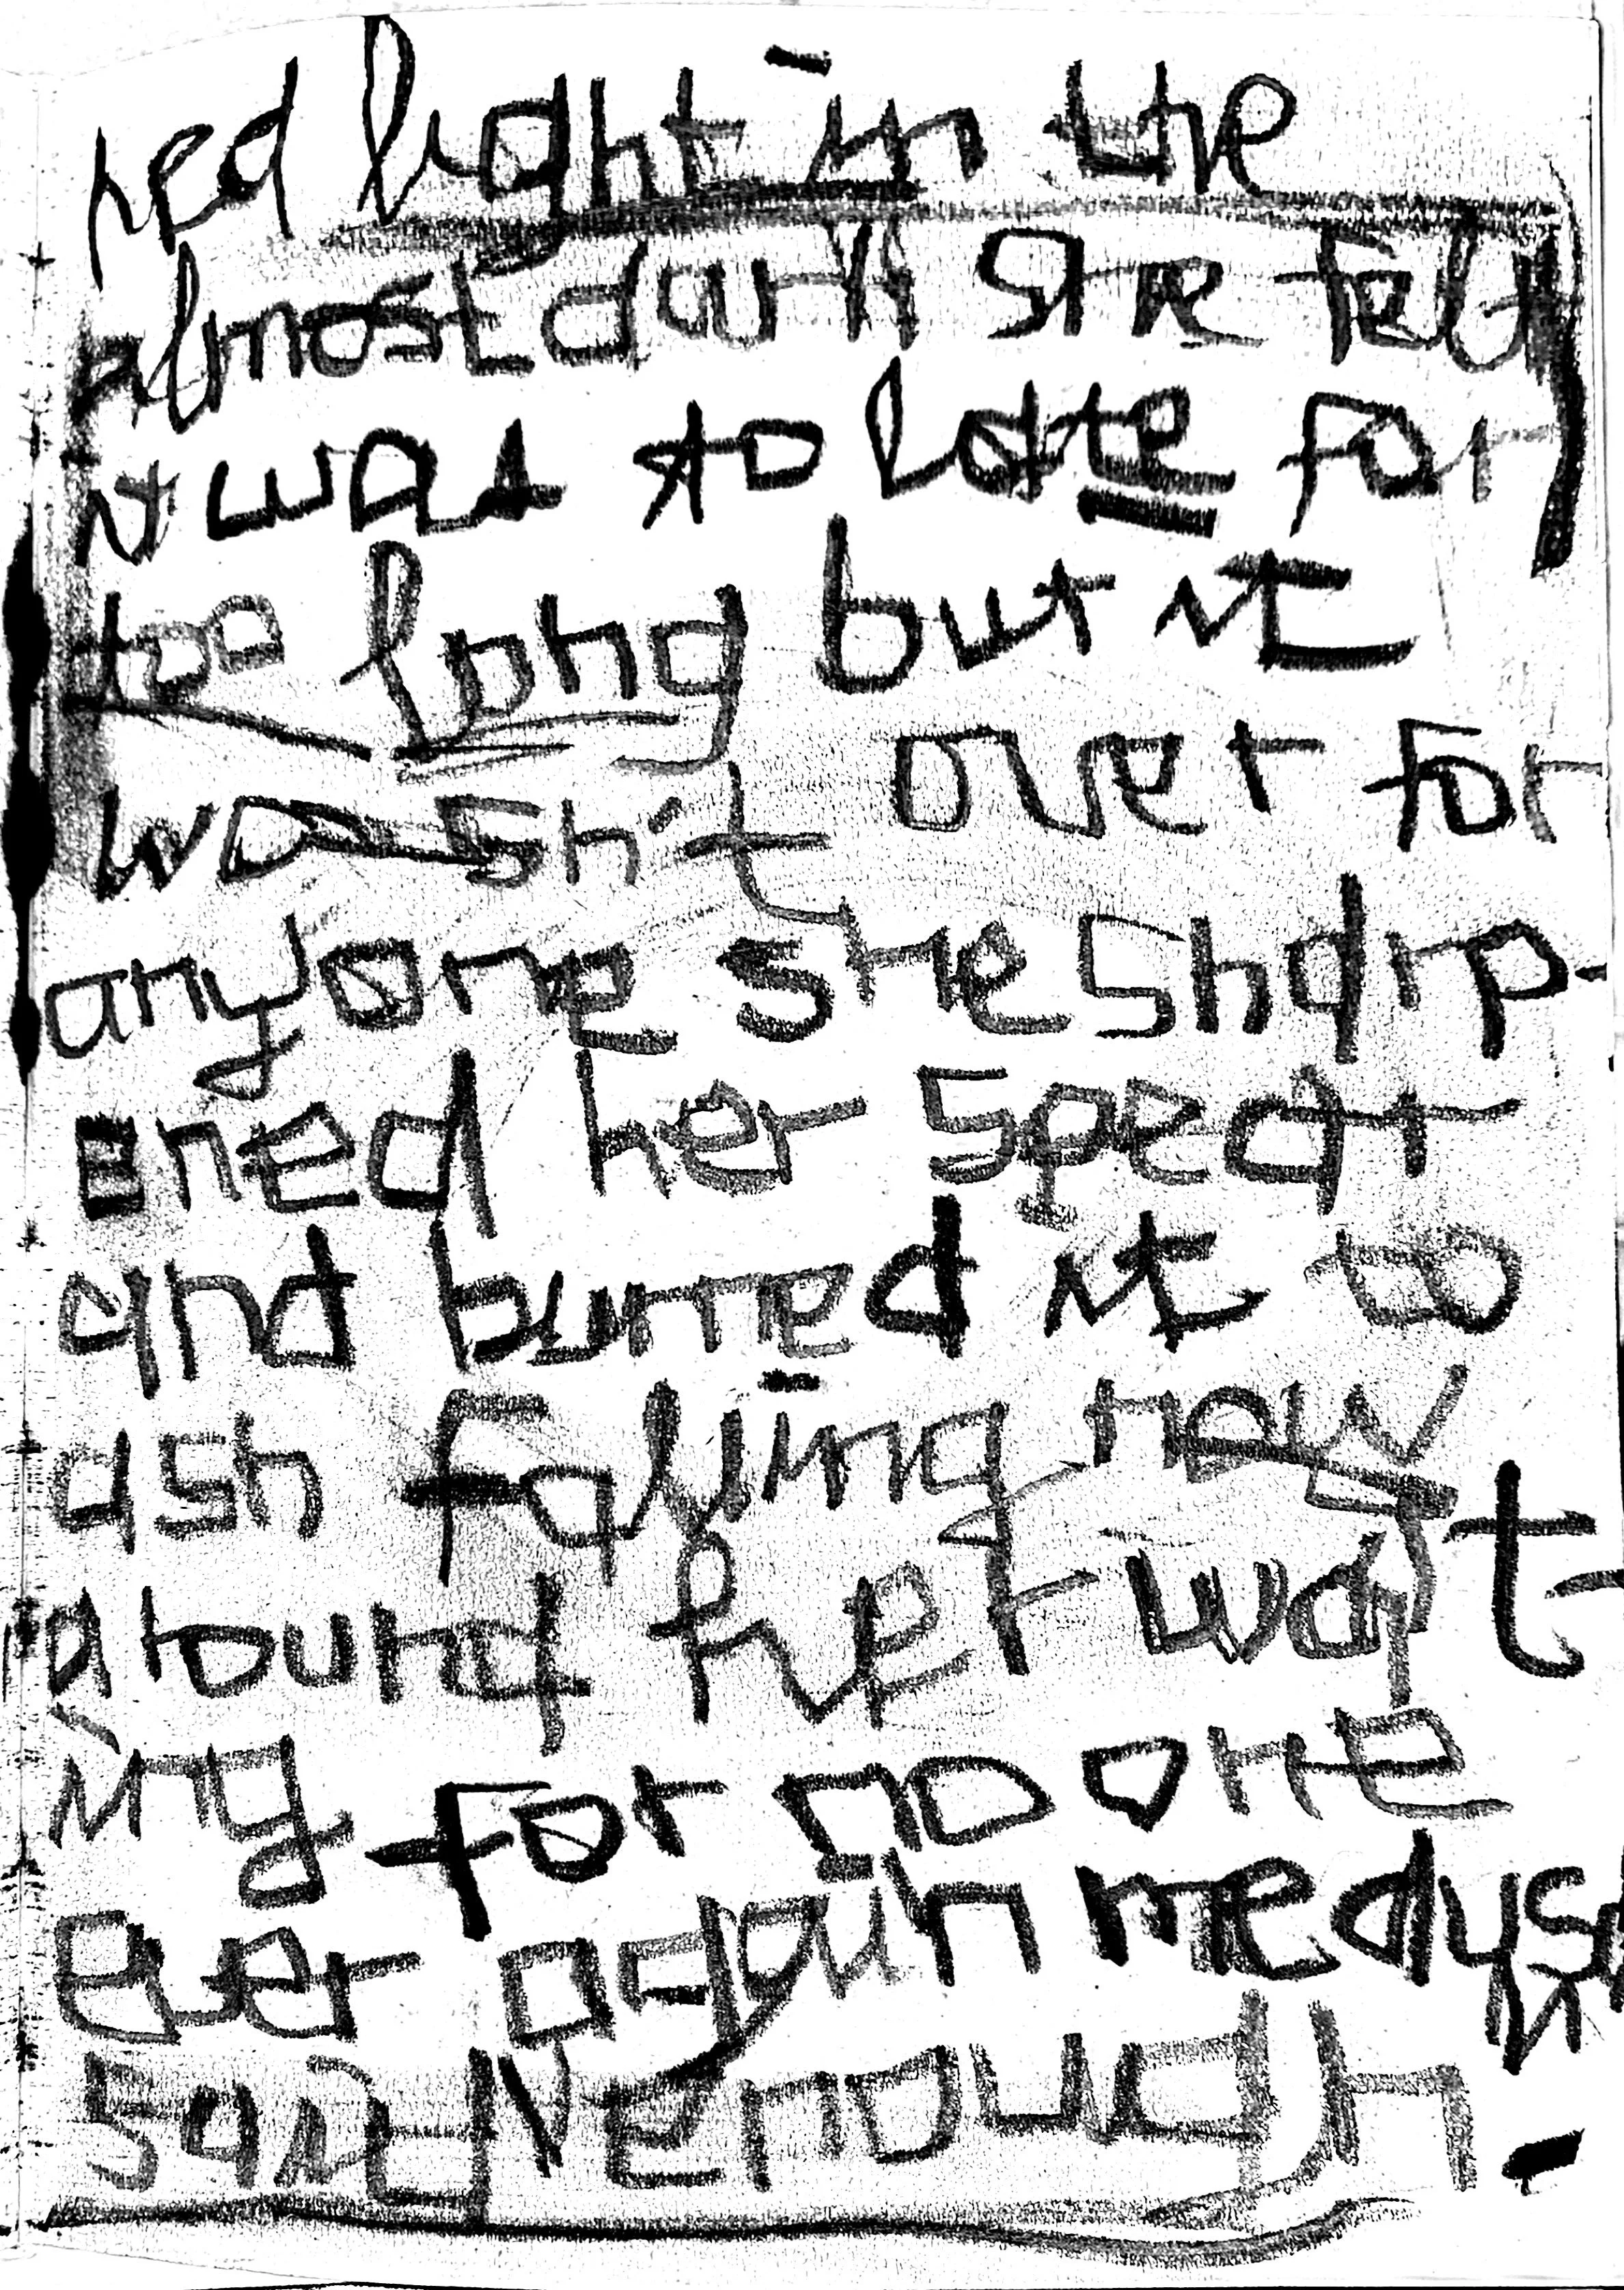 red light in the
almost dark she felt
it was to late for
too long but it
wasn't over for
anyone she sharp-
ened her spear
and burned it to
ash falling new
around her wait-
ing for no one
ever again medusa
said enough.